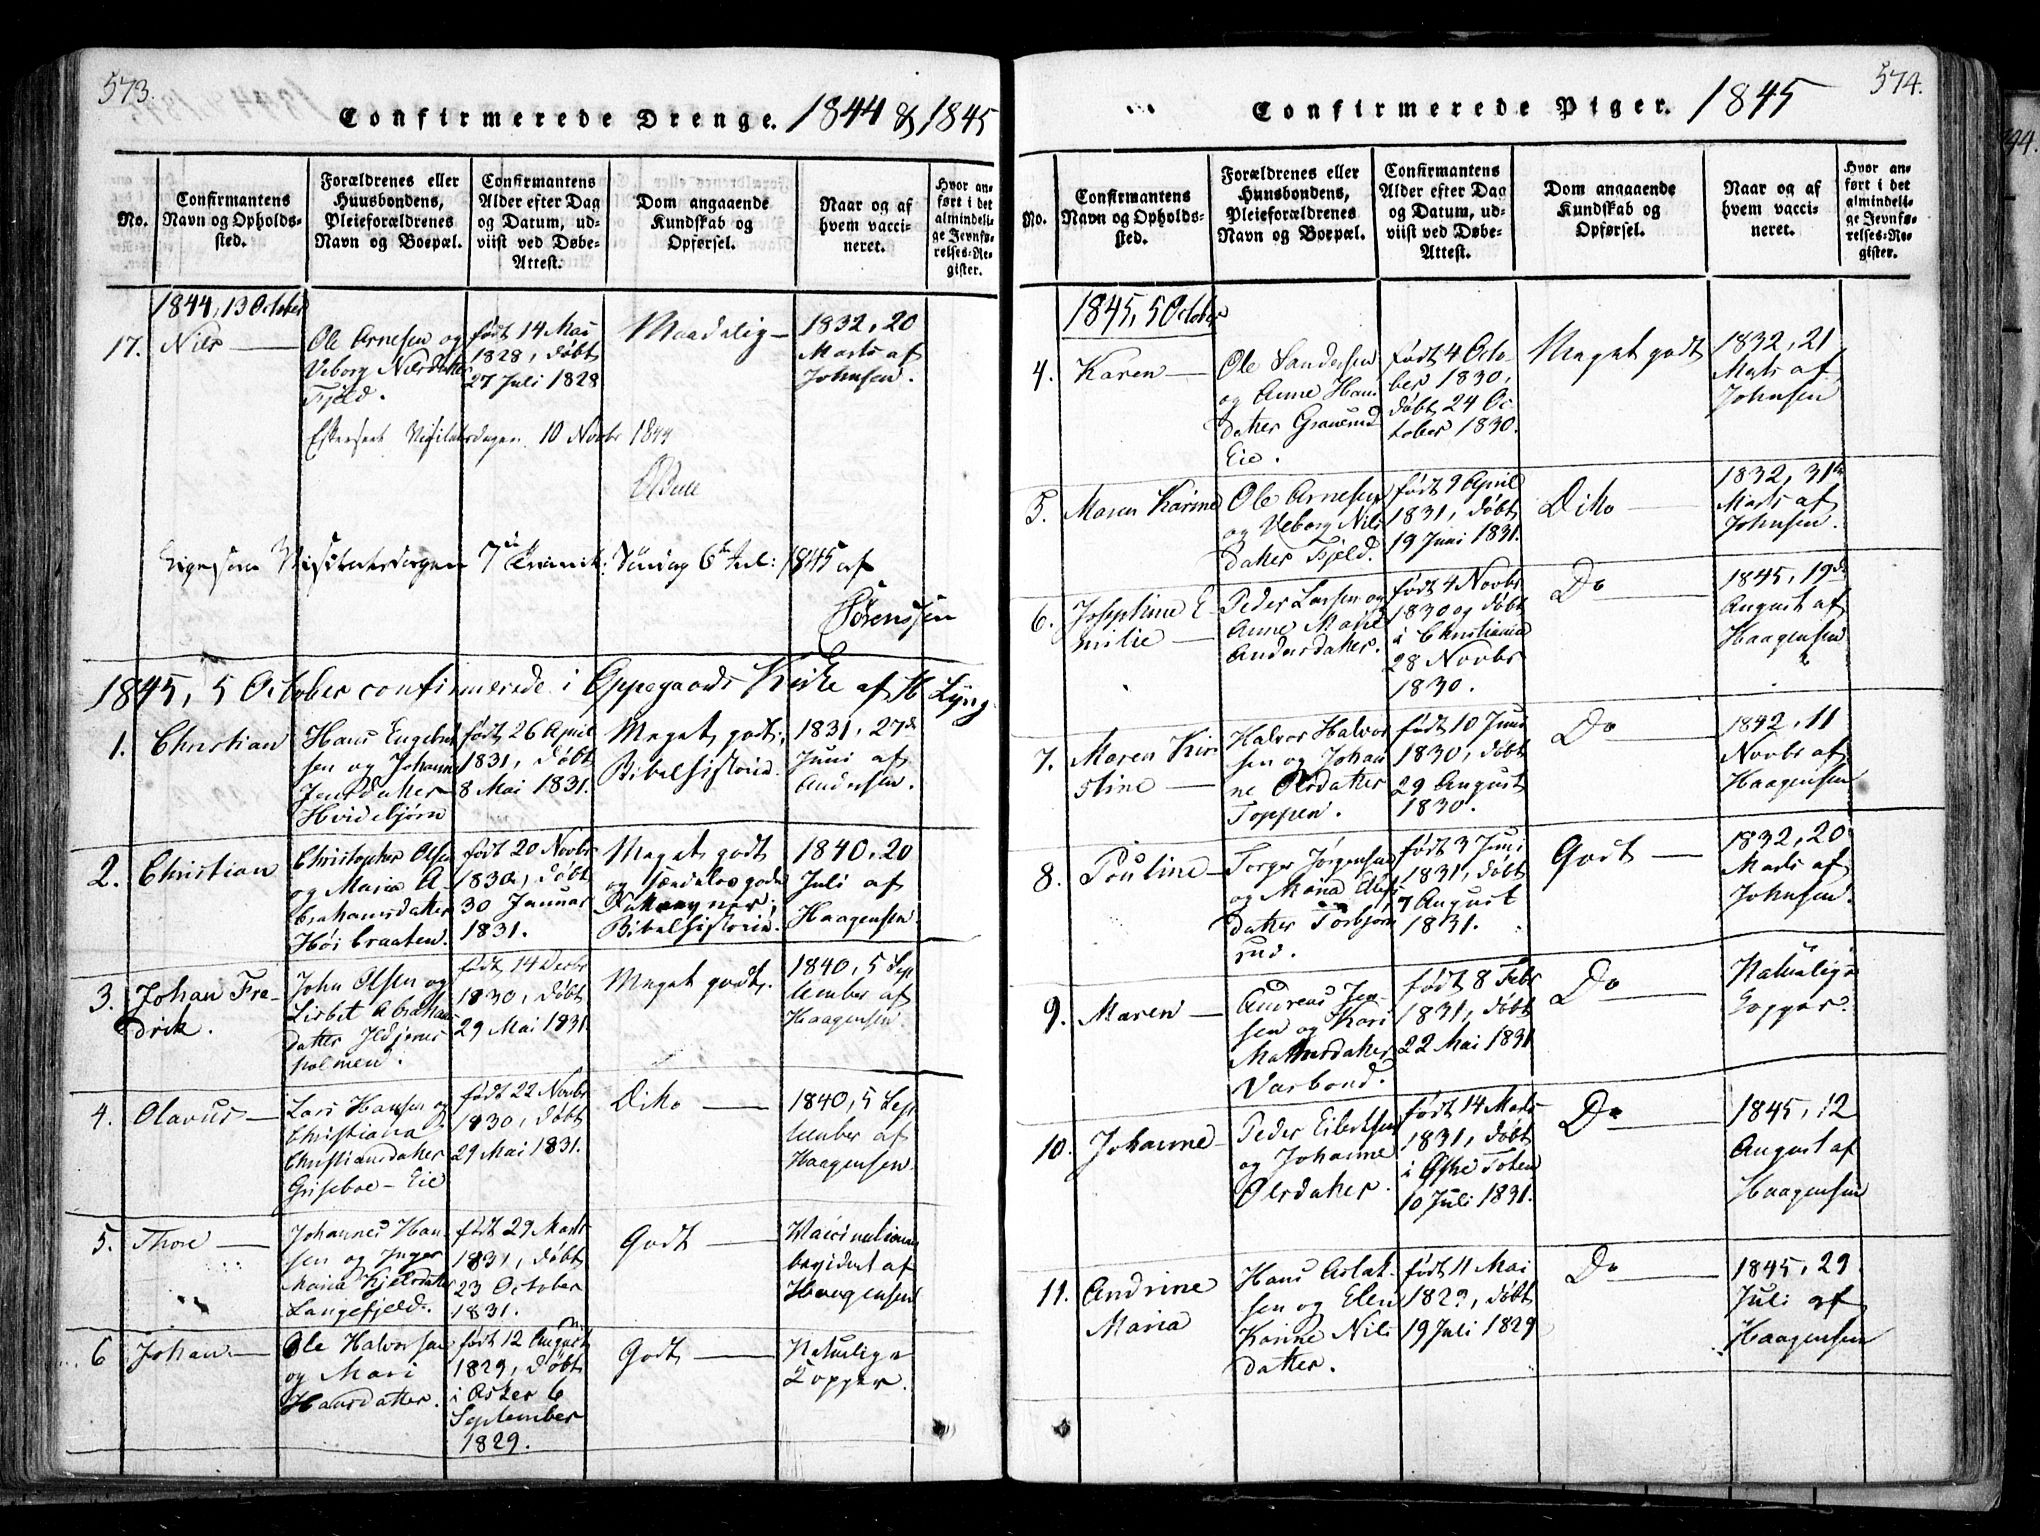 573.
Confirmerede Drenge. 1844 & 1845
No.
Confirmantens
Navn og Opholds-
sted.
Forældrenes eller
Huusbondens,
Pleieforældrenes
Navn og Boepæl.
Confirmantens
Alder efter Dag
og Datum, ud-
viist ved Døbe-
Attest.
Dom angaaende
Kundskab og
Opførsel.
Naar og af
hvem vacci-
neret.
Hvor an-
ført i det
almindeli-
ge Jevnfø-
relses-Re-
gister.
1844, 13 October
17.
Nils
Ole Arnesen og
Veborg Nilsdatter
Fjeld.
født 14 Mai
1828, døbt
27 Juli 1828
Maadelig
1832, 20
Marts af
Johnsen.
Efterseet Visitatsdagen 10 Novbr 1844
Ligesaa Visitatsdagen 7de Trinit: Søndag 6te Jul: 1845 af
Sørenssen
1845, 5 October confirmerede i Oppegaards Kirke af H Lyng
1.
Christian
Hans Engebret
sen og Johanne
Jensdatter
Hvidebjørn
født 26 April
1831, døbt
8 Mai 1831.
Meget godt,
Bibelhistorie.
1831, 27de
Juni af
Andersen.
2.
Christian
Christopher Olsen
og Maria A-
brahamsdatter
Høibraaten.
født 20 Novbr
1830, døbt
30 Januar
1831.
Meget godt
og
Bibelhistorie.
1840, 20
Juli af
Haagensen.
3.
Johan Fre-
drik.
John Olsen og
Lisbet Abrahams
datter Ildjerns
holmen.
født 14 Decbr
1830, døbt
29 Mai 1831
Meget godt.
1840, 5 Sep
tember af
Haagensen.
4.
Olavus
Lars Hansen og
Christiana
Christiansdatter
Griseboe-Eie
født 22 Novbr
1830, døbt
29 Mai 1831.
Ditto
1840, 5 Sep
tember af
Haagensen.
5.
Thore
Johannes Han
sen og Inger
Maria Kjelsdatter
Langefjeld.
født 29 Marts
1831, døbt
23 October
1831.
Godt
Vaccinations
bevidnet af
Haagensen
6
Johan
Ole Halvorsen
og Mari
Hansdatter.
født 12 August
1829, døbt
i Asker 6
September
1829.
Godt
Naturlige
Kopper.
574.
Confirmerede Piger. 1845
No.
Confirmantens
Navn og Opholds-
sted.
Forældrenes eller
Huusbondens,
Pleieforældrenes
Navn og Boepæl.
Confirmantens
Alder efter Dag
og Datum, ud-
viist ved Døbe-
Attest.
Dom angaaende
Kundskab og
Opførsel.
Naar og af
hvem vacci-
neret.
Hvor an-
ført i det
almindeli-
ge Jevnfø-
relses-Re-
gister.
1845, 5 October
4.
Karen
Ole Sandersen
og Anne Hans
datter Grauerud
Eie.
født 4 Octo
ber 1830,
døbt 24 Oc
tober 1830.
Meget godt
1832, 21
Marts af
Johnsen
5.
Maren Karine
Ole Arnesen
og Veborg Nils
datter Fjeld.
født 9 April
1831, døbt
19 Juni 1831.
Ditto
1832, 31te
Marts af
Johnsen.
6.
Josephine E-
milie
Peder Larsen og
Anne Marie
Andersdatter.
født 4 Novbr
1830 og døbt
i Christiania
28 Novbr
1830.
Do
1845, 19de
August af
Haagensen
7.
Maren Kir
stine
Halvor Halvor
sen og Johan
ne Olsdatter
Toppen.
født 10 Juni
1830, døbt
29 August
1830.
Do
1842, 11
Novbr af
Haagensen
8.
Pouline
Torger Jørgensen
og Maria Elefs
datter Torbjørns
rud.
født 3 Juni
1831, døbt
7 August
1831.
Godt
1832, 20
Marts af
Johnsen.
9.
Maren
Andreas Jen
sen og Kari
Mathisdatter
Varbond.
født 8 Febr
1831, døbt
22 Mai 1831
Do
Naturlige
Kopper.
10.
Johanne
Peder Eibertsen
og Johanne
Olsdatter.
født 14 Marts
1831, døbt
i Østre Toten
10 Juli 1831.
Do
1845, 12
August af
Haagensen
11.
Andrine
Maria
Hans Aslak-
sen og Elen
Karine Nils
datter.
født 11 Mai
1829, døbt
19 Juli 1829
Do
1845, 29
Juli af
Haagensen